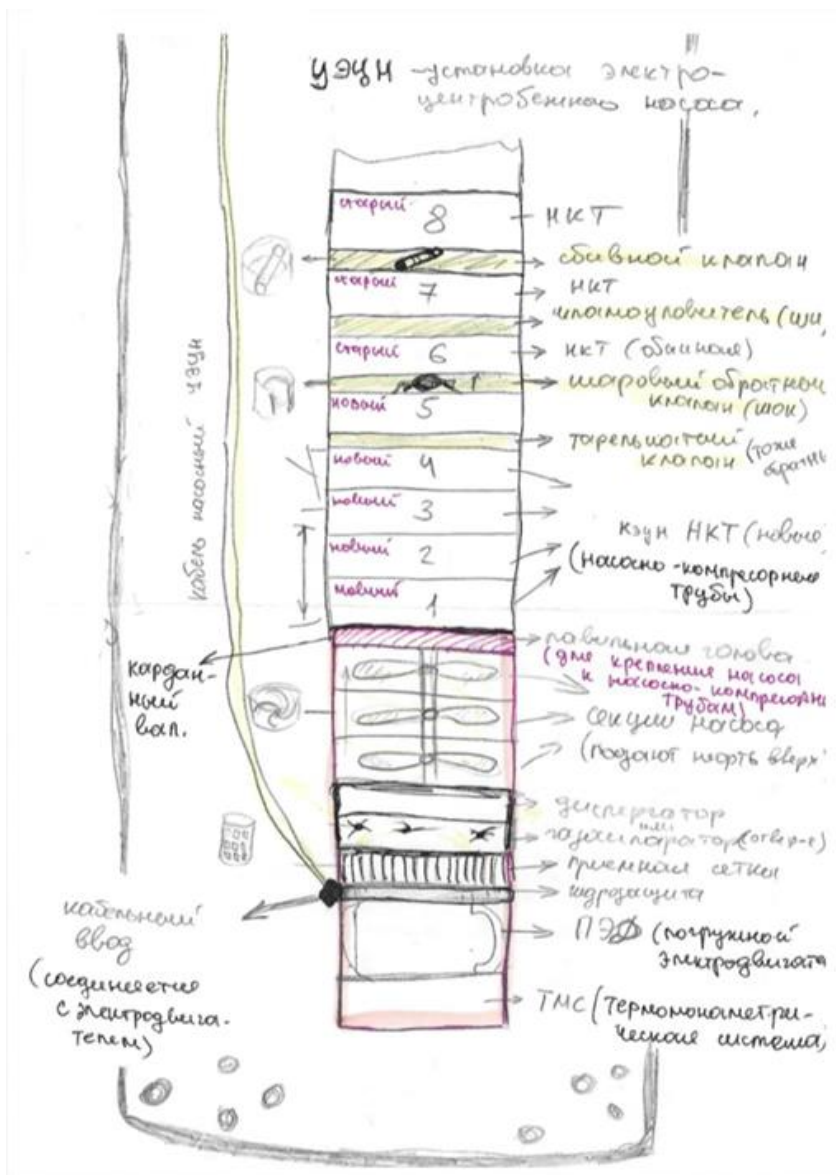 УЭЦН - установка электро-
центробежного насоса.
старый 8
НКТ
сбивной клапан
старый 7
НКТ
шламоуловитель (шу,
старый 6
НКТ (обычная)
шаровый обратный
клапан (шок)
новый 5
тарельчатый
клапан (тоже
обратн
новый 4
новый 3
новый 2
новый 1
кэцн НКТ (новые
(насосно-компресорные
трубы)
кабель насосный УЭЦН
кардан-
ный
вал.
ловильная голова
(для крепления насоса
к насосно-компресорны
трубам)
секции насоса
(подают нефть вверх
диспергатор
или
газосепаратор
приемная сетка
гидрозащита
кабельный
ввод
(соединяется
с электродвига-
телем)
ПЭД (погружной
электродвигате
ТМС (термоманометри-
ческая система,